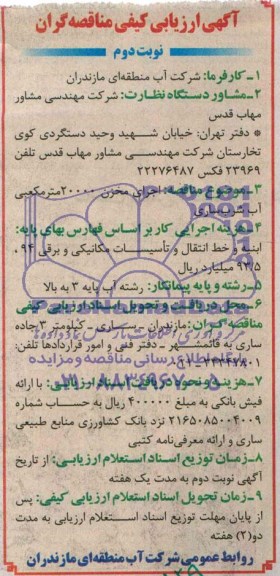 آگهی ارزیابی کیفی مناقصه گران
نوبت دوم
۱- کارفرما: شرکت آب منطقه‌ای مازندران
۲- مشاور دستگاه نظارت: شرکت مهندسی مشاور
مهاب قدس
* دفتر تهران: خیابان شهید وحید دستگردی کوی
تخارستان شرکت مهندسی مشاور مهاب قدس تلفن
۲۳۹۶۹ فکس ۲۲۲۷۶۴۸۷
۳- موضوع مناقصه: اجرای مخزن ۲۰۰۰۰ مترمکعبی
آب شرب ساری
۴- هزینه اجرایی کار بر اساس فهارس بهای پایه:
ابنیه و خط انتقال و تأسیسات مکانیکی و برقی ۹۴،
۹۳/۵ میلیارد ریال
۵- رشته و پایه پیمانکار: رشته آب پایه ۳ به بالا
۶- محل دریافت و تحویل اسناد ارزیابی کیفی
مناقصه گران: مازندران - ساری - کیلومتر ۳ جاده
ساری به قائمشهر - دفتر فنی و امور قراردادها تلفن:
۷- هزینه و نحوه دریافت اسناد ارزیابی: با ارائه
فیش بانکی به مبلغ ۴۰۰۰۰۰ ریال به حساب شماره
۲۱۶۵۰۸۵۰۰۴۰۰۹ نزد بانک کشاورزی منابع طبیعی
ساری و ارائه معرفی‌نامه کتبی
۸- زمان توزیع اسناد استعلام ارزیابی: از تاریخ
آگهی نوبت دوم به مدت یک هفته
۹- زمان تحویل اسناد استعلام ارزیابی کیفی: پس
از پایان مهلت توزیع اسناد استعلام ارزیابی به مدت
دو(۲) هفته
روابط عمومی شرکت آب منطقه‌ای مازندران